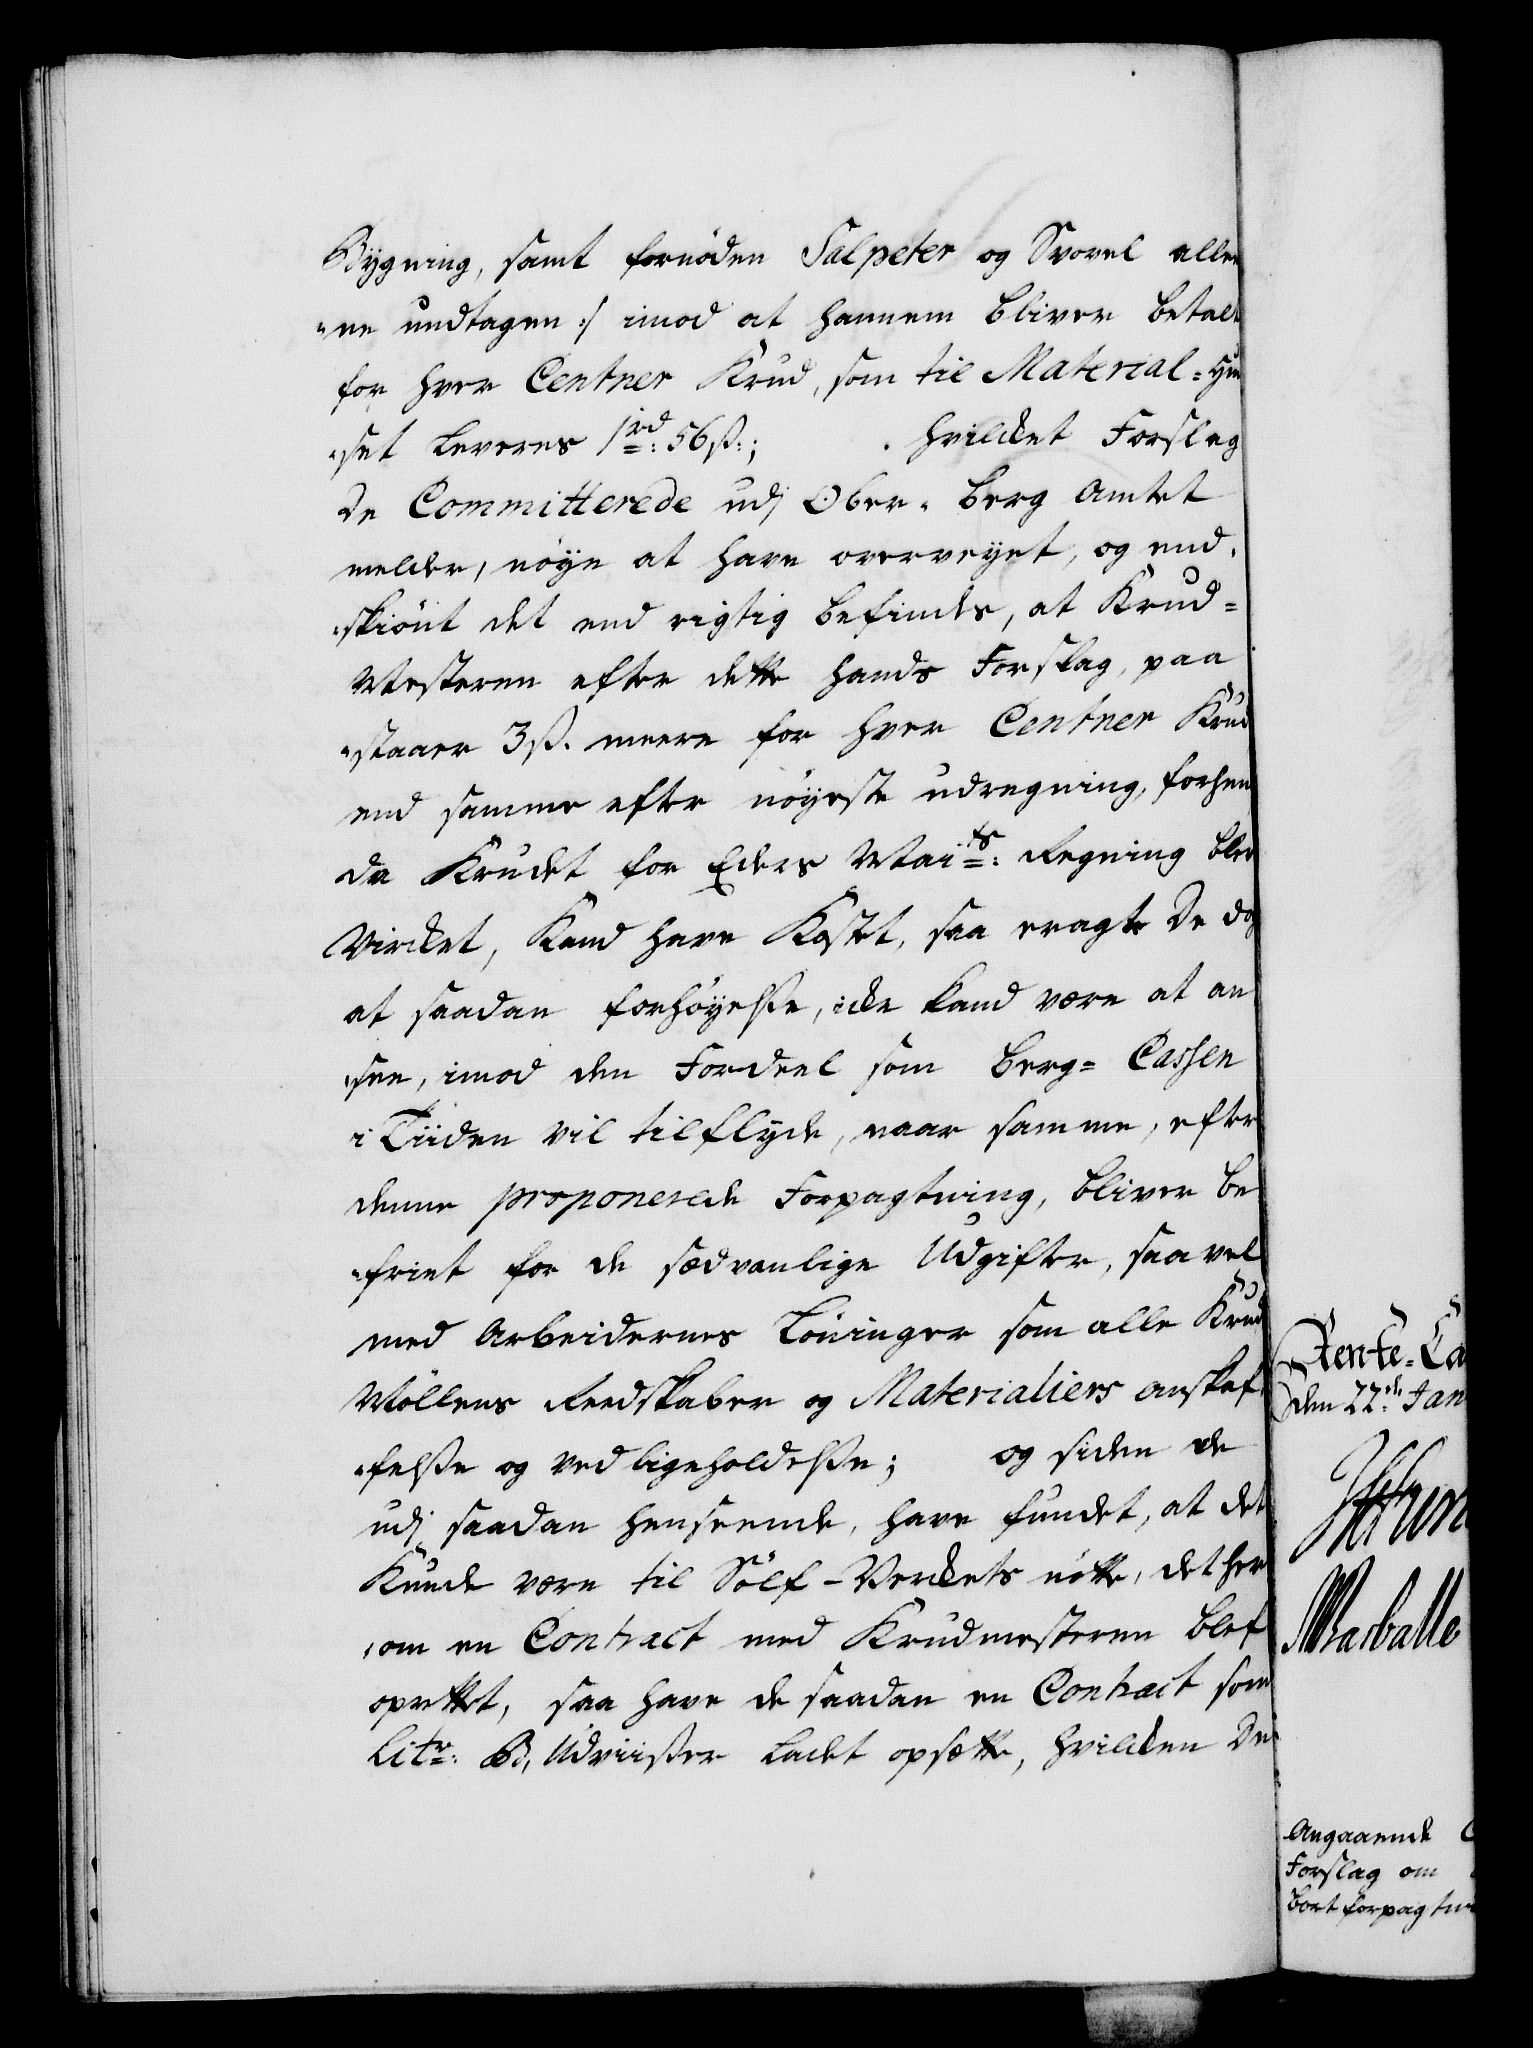 Bygning, samt fornöden Salpeter og Svovel alle
"ne undtagen :/ imod at hannem bliver betalt
for hver Centner Krud, som til Material-Huu
"set leveres 1 rd: 56 ß:; hvilcket Forslag
De Committerede udj Ober-Berg Amtet
melder, nöye at have overveyet, og end,
"skiönt det end rigtig befindes, at Krud=
Mesteren efter dette hands Forslag, paa
"staaer 3 ß. meere for hver Centner Krud
end samme efter nöyeste udregning, forhen
da Krudet for Eders Maits: Regning blev
Virket, Kand have Kostet, saa eragte De dog
at saadan forhöyelße, icke kand være at an
"see, imod den Fordeel som Berg= Cassen
i Tiiden vil tilflyde, naar samme, efter
denne proponerede Forpagtning, bliver be
"friet for de sædvanlige Udgifter, saavel
med Arbeidernes Löninger som alle Krud
Möllens Reedskaber og Materialiers anskaf
"felße og vedligeholdelße; og siden de
udj saadan henseende, have fundet, at det
Kunde være til Sölf-Verckets nötte, det her
"om en Contract med Krudmesteren blef
oprettet, saa have de saadan en Contract som
Litr: B, Udviißer ladet opsætte, hvilcken De
Rente-Ca
den 22de Jan
Barballe
Angaaende
Forslag om
bortforpagtni